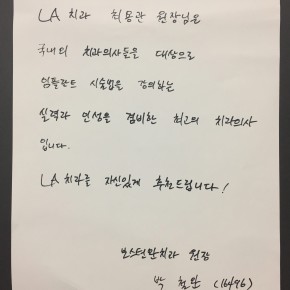 LA 치과 최몽관 원장님은
국내의 치과의사들을 대상으로
임플란트 시술법을 강의하는
실력과 인성을 겸비한 최고의 치과의사
입니다.
LA 치과를 자신있게 추천드립니다!
보스턴완치과 원장
박 철완 (16496)